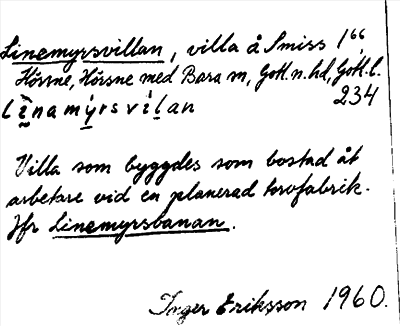 Linemyrsvillan, villa å Smiss 1⁶⁶,
Hörsne, Hörsne med Bara sn, Gotl. n. hd, Gotl. l.
234
linamyrsvilan
Villa som byggdes som bostad åt
arbetare vid en planerad torvfabrik.
Jfr Linemyrsbanan.
Inger Eriksson 1960.